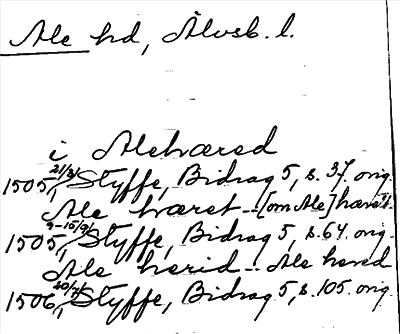 Ale hd, Älvsb. l.
i Alehæred
1505 21/3, Styffe, Bidrag 5, s. 37. orig.
Ale hæret -- [om Ale] hæret
1505 9-15/9, Styffe, Bidrag 5, s. 64. orig.
Ale herid -- Ale hered
1506 20/2, Styffe, Bidrag 5, s. 105. orig.